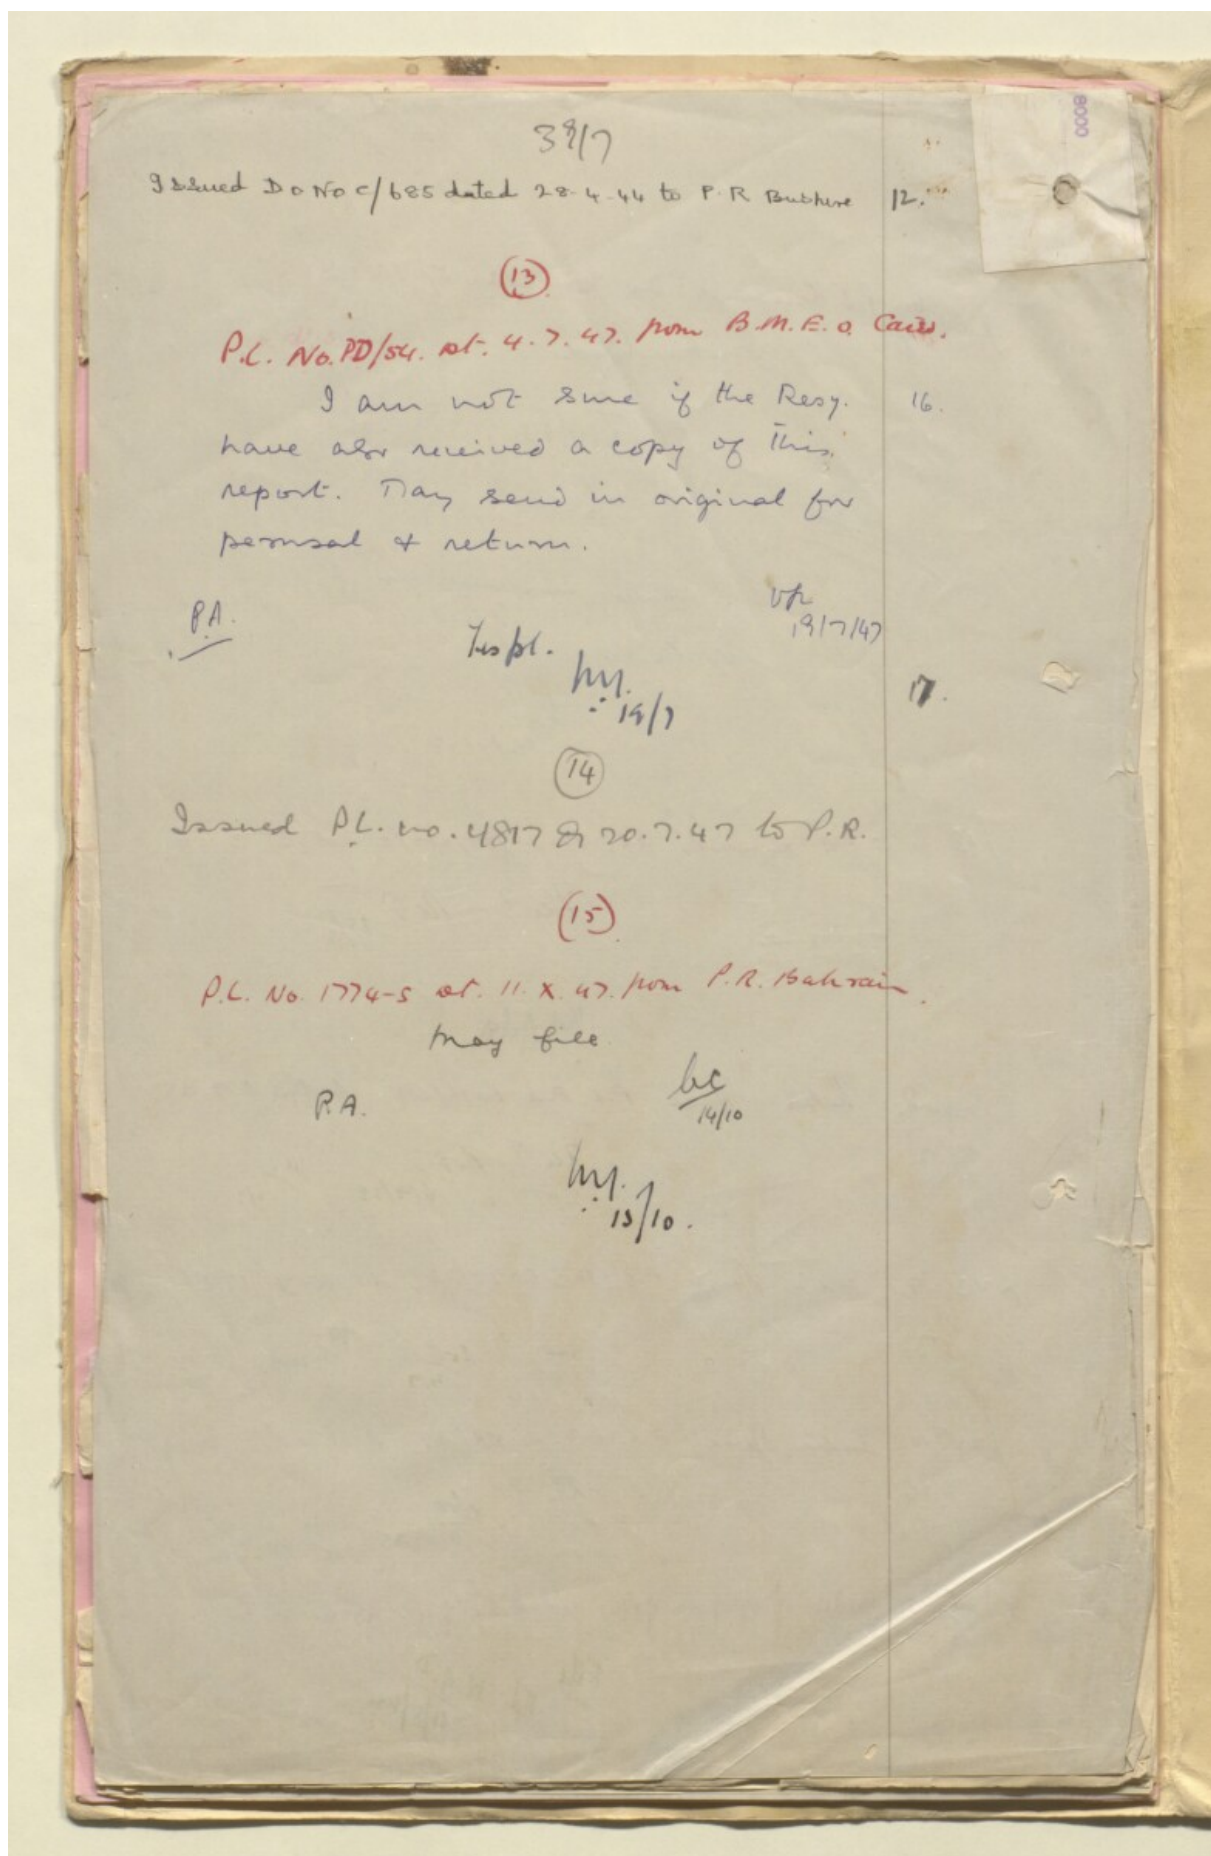 38/7
8000
Issued D O No C/685 dated 28-4-44 to P. R Bushire 12.
(13)
P.L. No. PD/54. dt. 4.7.47. from B.M.E.O. Cairo.
I am not sure if the Resy. 16.
have also received a copy of this
report. May send in original for
perusal & return.
P.A.
19/7/47
Yes pl.
19/7
17.
(14)
Issued P.L. no. 4817 20.7.47 to P.R.
(15)
P.L. No. 1774-S dt. 11.X.47. from P.R. Bahrain.
May file
P.A.
14/10
15/10.